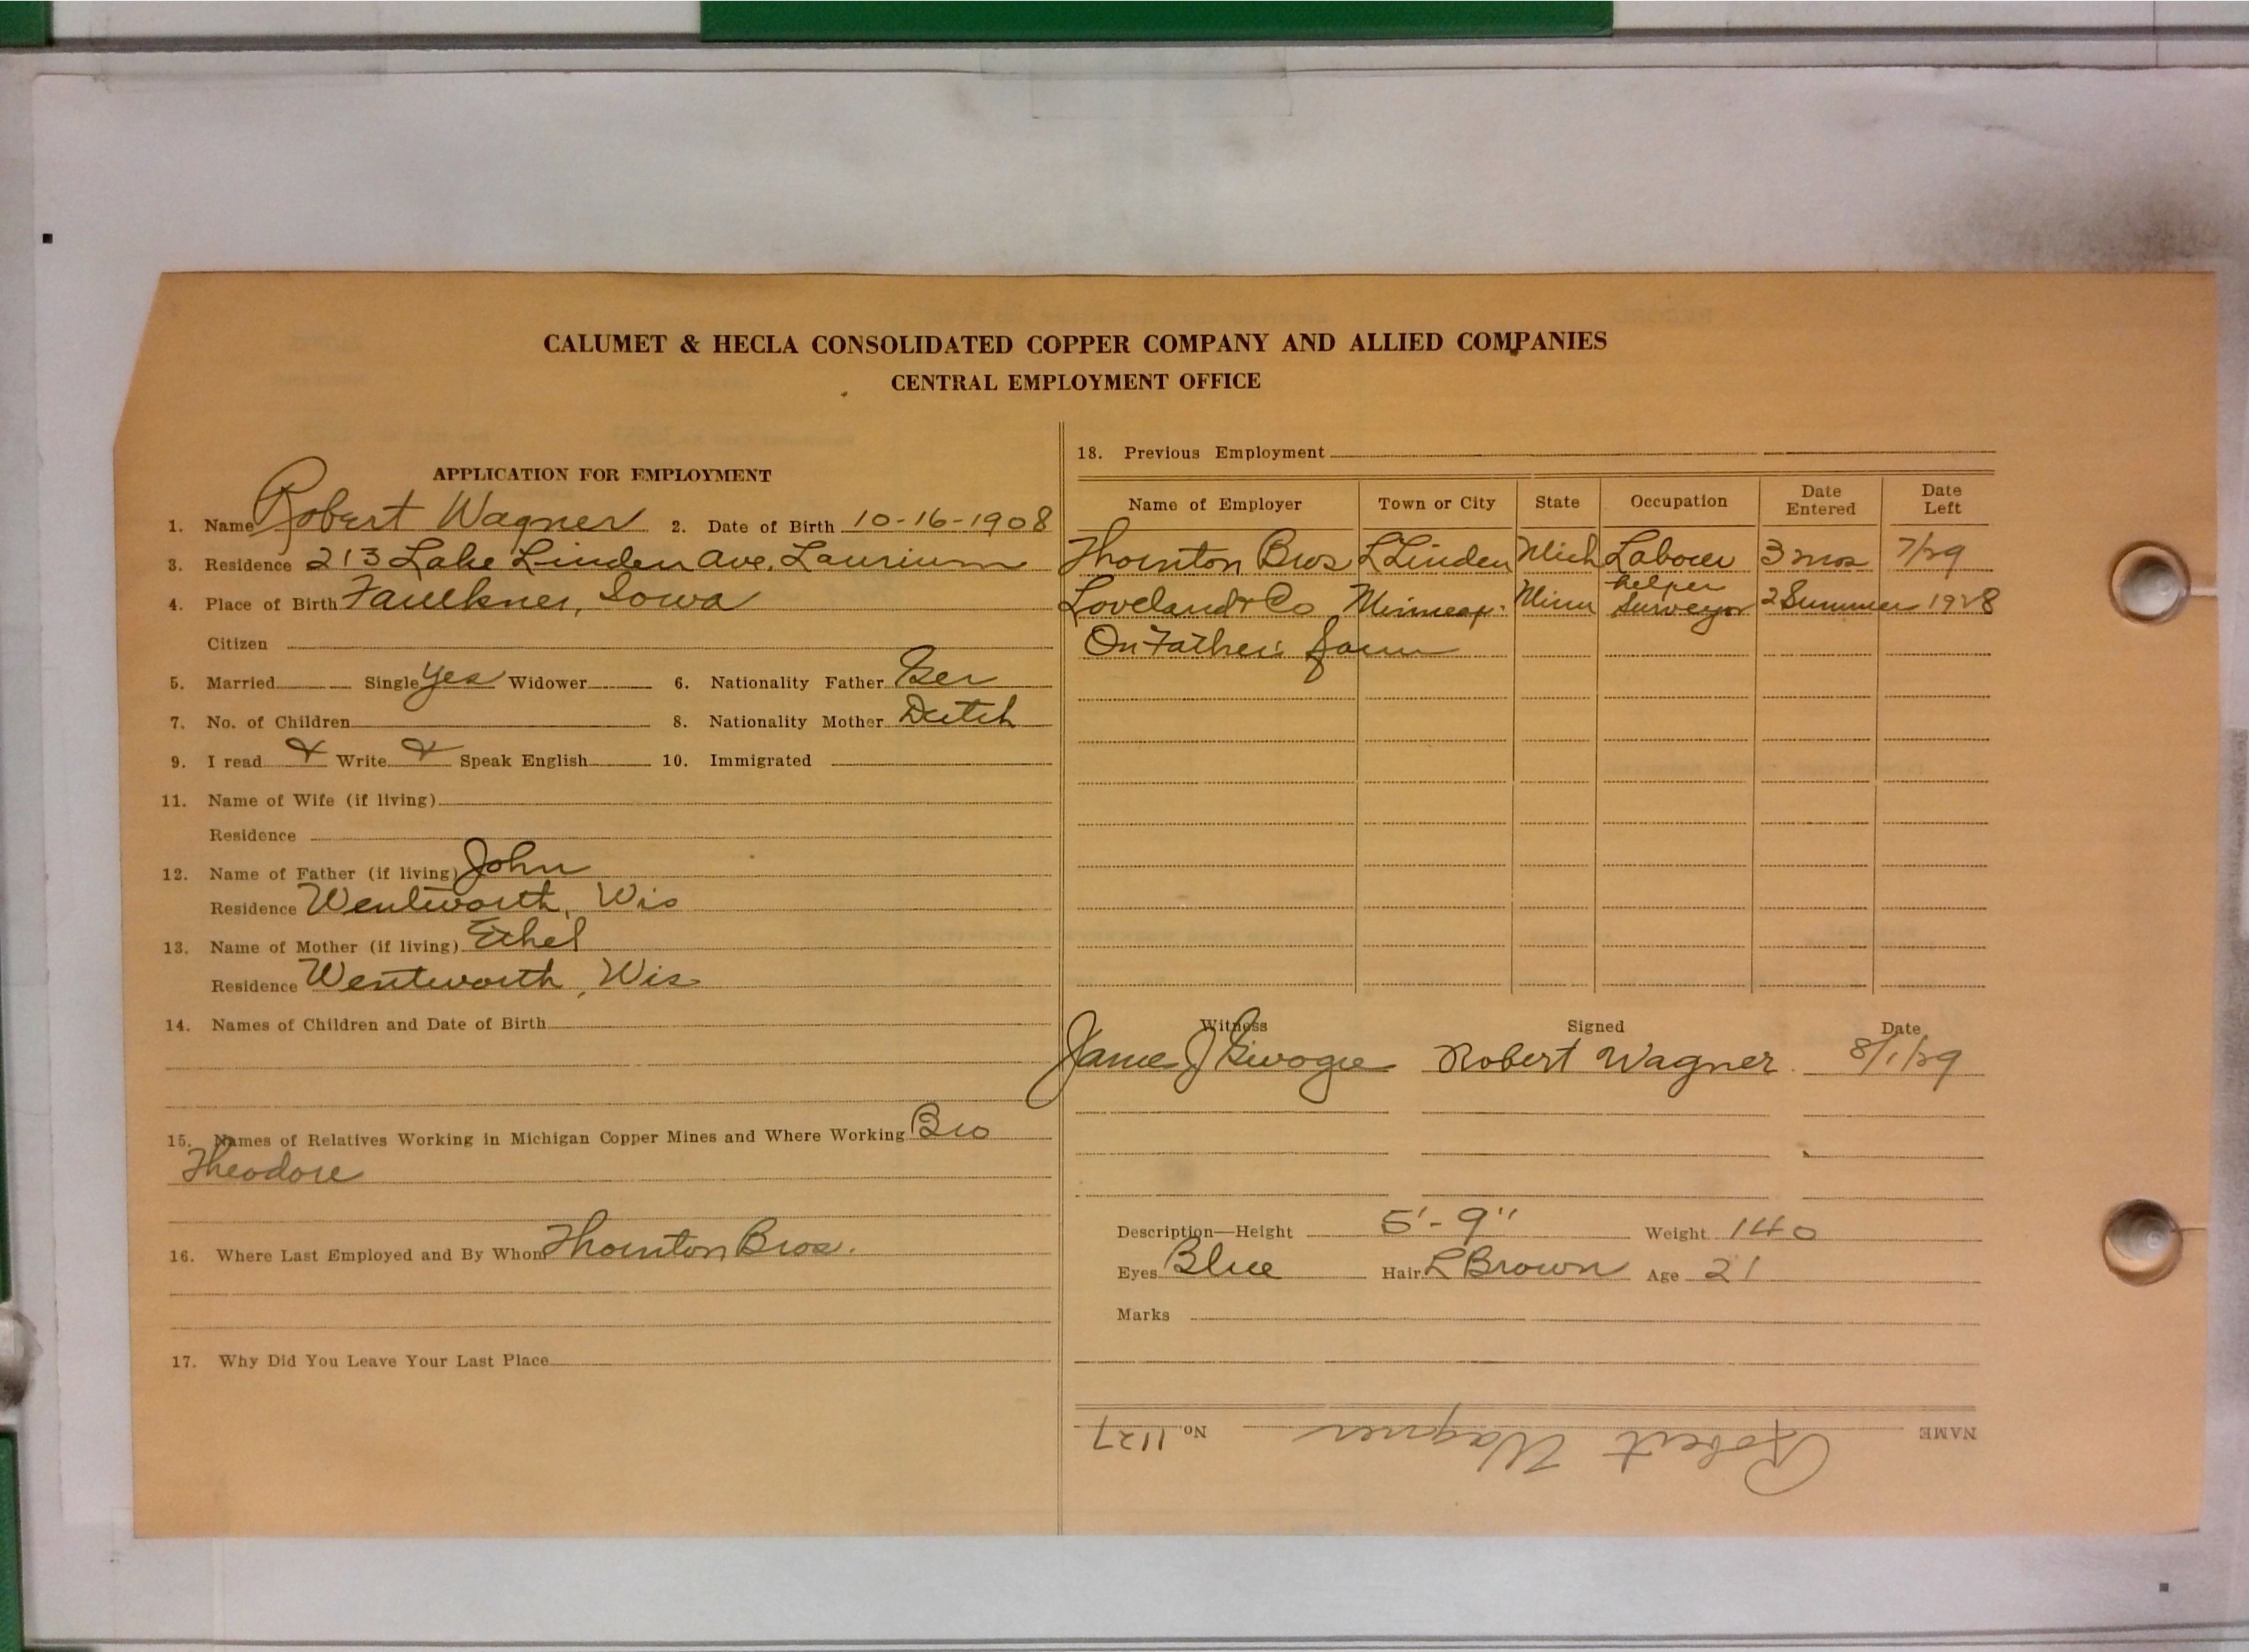 CALUMET & HECLA CONSOLIDATED COPPER COMPANY AND ALLIED COMPANIES
CENTRAL EMPLOYMENT OFFICE
APPLICATION FOR EMPLOYMENT
1. Name Robert Wagner 2. Date of Birth 10-16-1908
3. Residence 213 Lake Linden Ave, Laurium
4. Place of Birth Faulkner, Iowa
Citizen
5. Married Single Yes Widower 6. Nationality Father Ger
7. No. of Children 8. Nationality Mother Dutch
9. I read Write Speak English 10. Immigrated
11. Name of Wife (if living)
Residence
12. Name of Father (if living) John
Residence Wentworth, Wis
13. Name of Mother (if living) Ethel
Residence Wentworth, Wis
14. Names of Children and Date of Birth
15. Names of Relatives Working in Michigan Copper Mines and Where Working Bro
Theodore
16. Where Last Employed and By Whom Thornton Bros.
17. Why Did You Leave Your Last Place
18. Previous Employment
Name of Employer Town or City State Occupation Date Entered Date Left
Thornton Bros L Linden Mich Laborer 3 mos 7/29
Loveland & Co Minneap. Minn helper Surveyor 2 Summer 1928
On Father's farm
Witness Signed Date
James J Robert Wagner 8/1/29
Description—Height 5'-9" Weight 140
Eyes Blue Hair L Brown Age 21
Marks
NAME Robert Wagner No. 1127